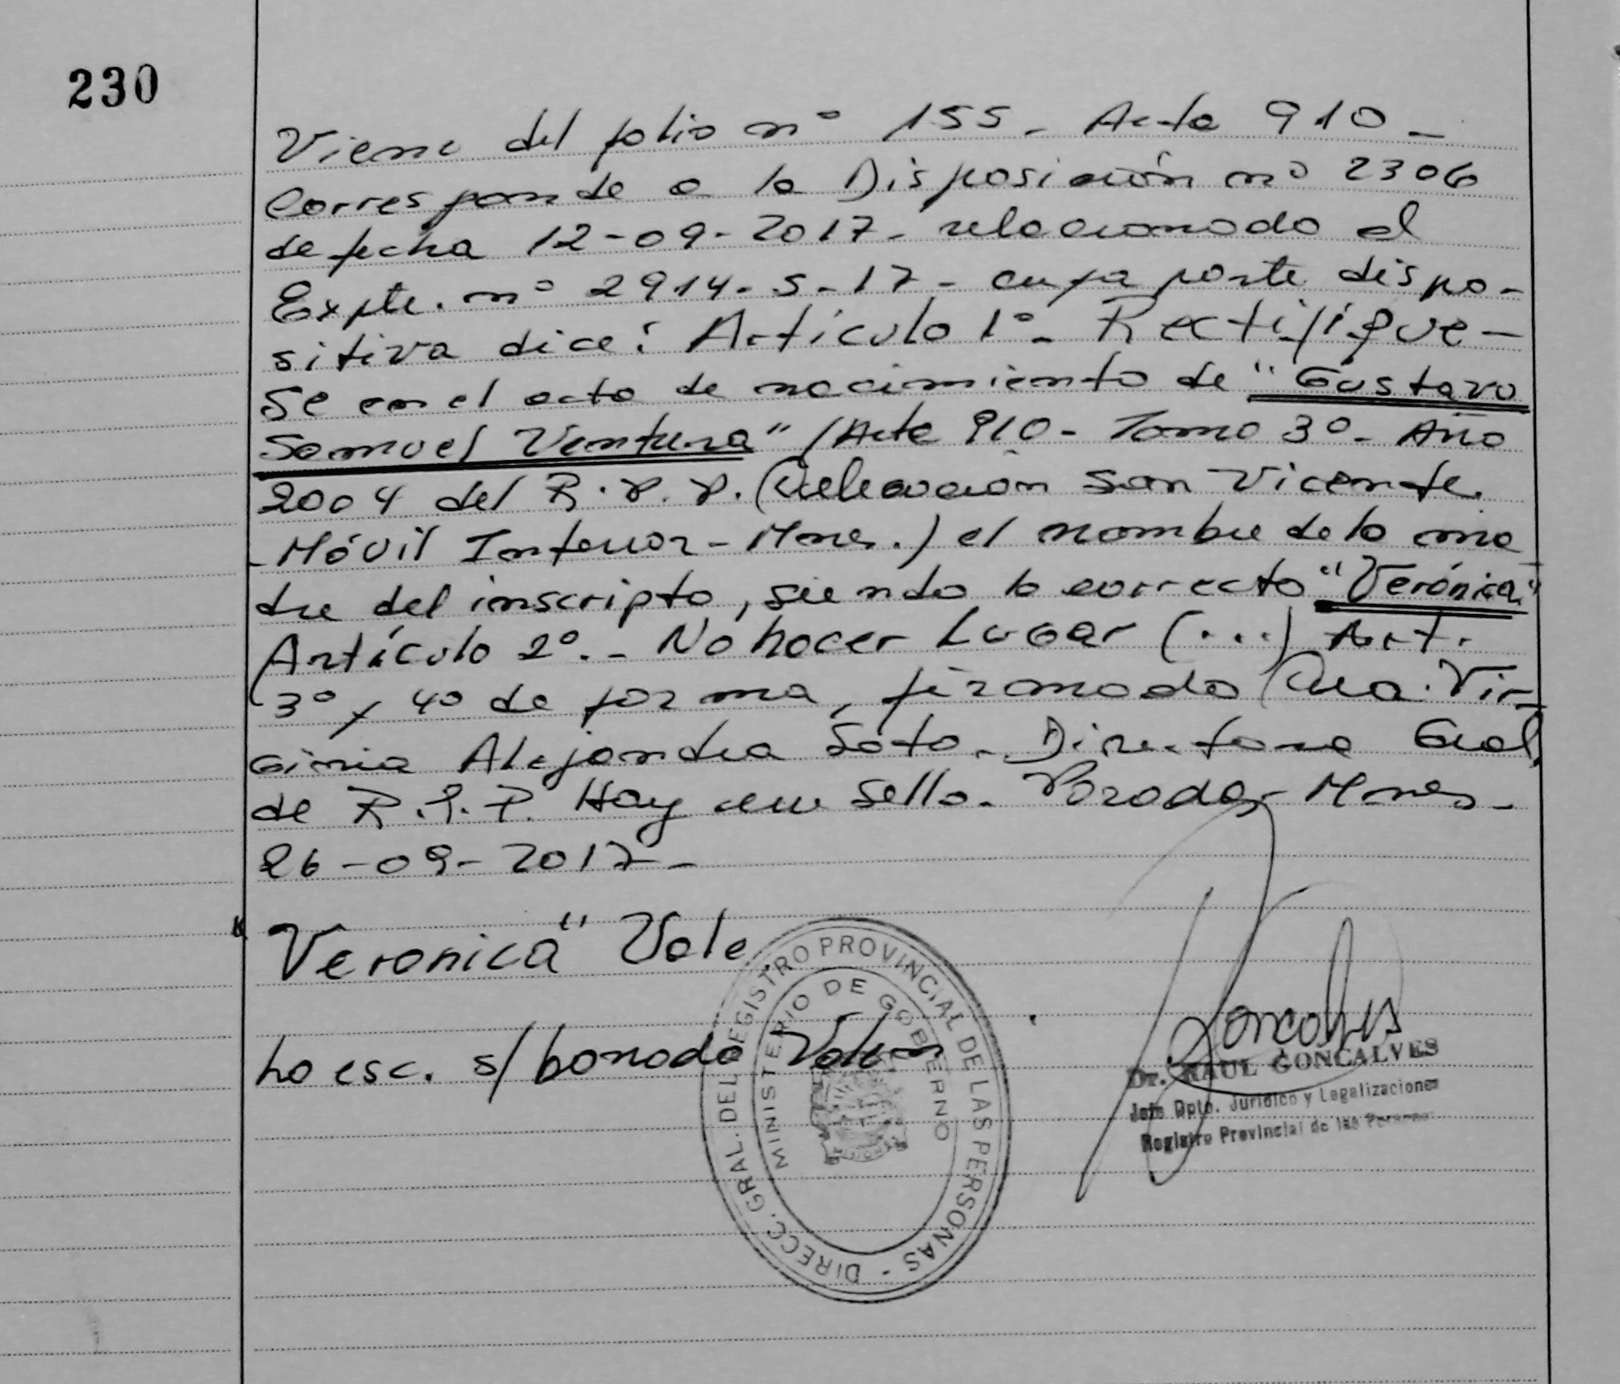 230
Viene del folio nº 155. Acta 910 -
Corresponde a la Disposición nº 2306
de fecha 12-09-2017- relacionado al
Expte. nº 2914-S-17- cuya parte dispo-
sitiva dice: Artículo 1º- Rectifíque-
se en el acta de nacimiento de "Gustavo
Samuel Ventura" (Acta 910- Tomo 3º- Año
2004 del R.P.P. (Delegación San Vicente
-Móvil Interior-Mnes.) el nombre de la ma
dre del inscripto, siendo lo correcto "Verónica"
Artículo 2º.- No hacer Lugar (...) Art.
3º y 4º de forma, firmado Dra. Vir-
ginia Alejandra Soto. Directora Gral
de R.P.P. Hay un sello. Posadas Mnes-
26-09-2017-
"Veronica" Vale
Lo esc. s/ borrado Vale
DIRECC. GRAL. DEL REGISTRO PROVINCIAL DE LAS PERSONAS -
MINISTERIO DE GOBIERNO
Dr. RAUL GONCALVES
Jefe Dpto. Jurídico y Legalizaciones
Registro Provincial de las Personas